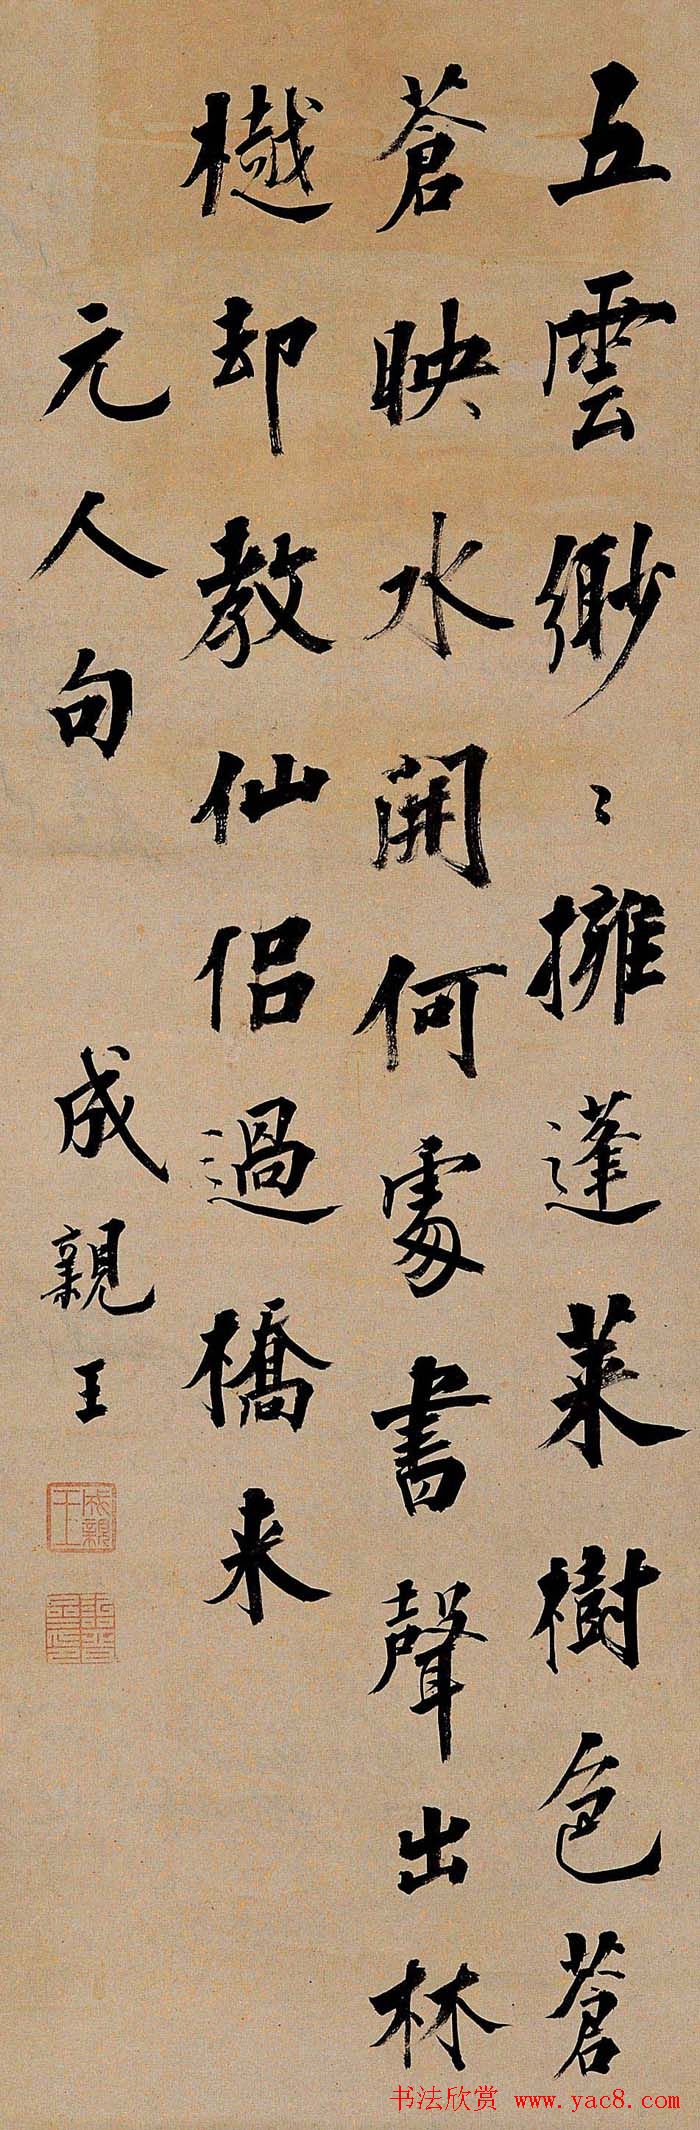 五雲緲〻擁蓬莱樹色蒼
蒼映水開何處書聲出林
樾却教仙侣過橋来
元人句
成親王
成親王
书法欣赏 www.yac8.com